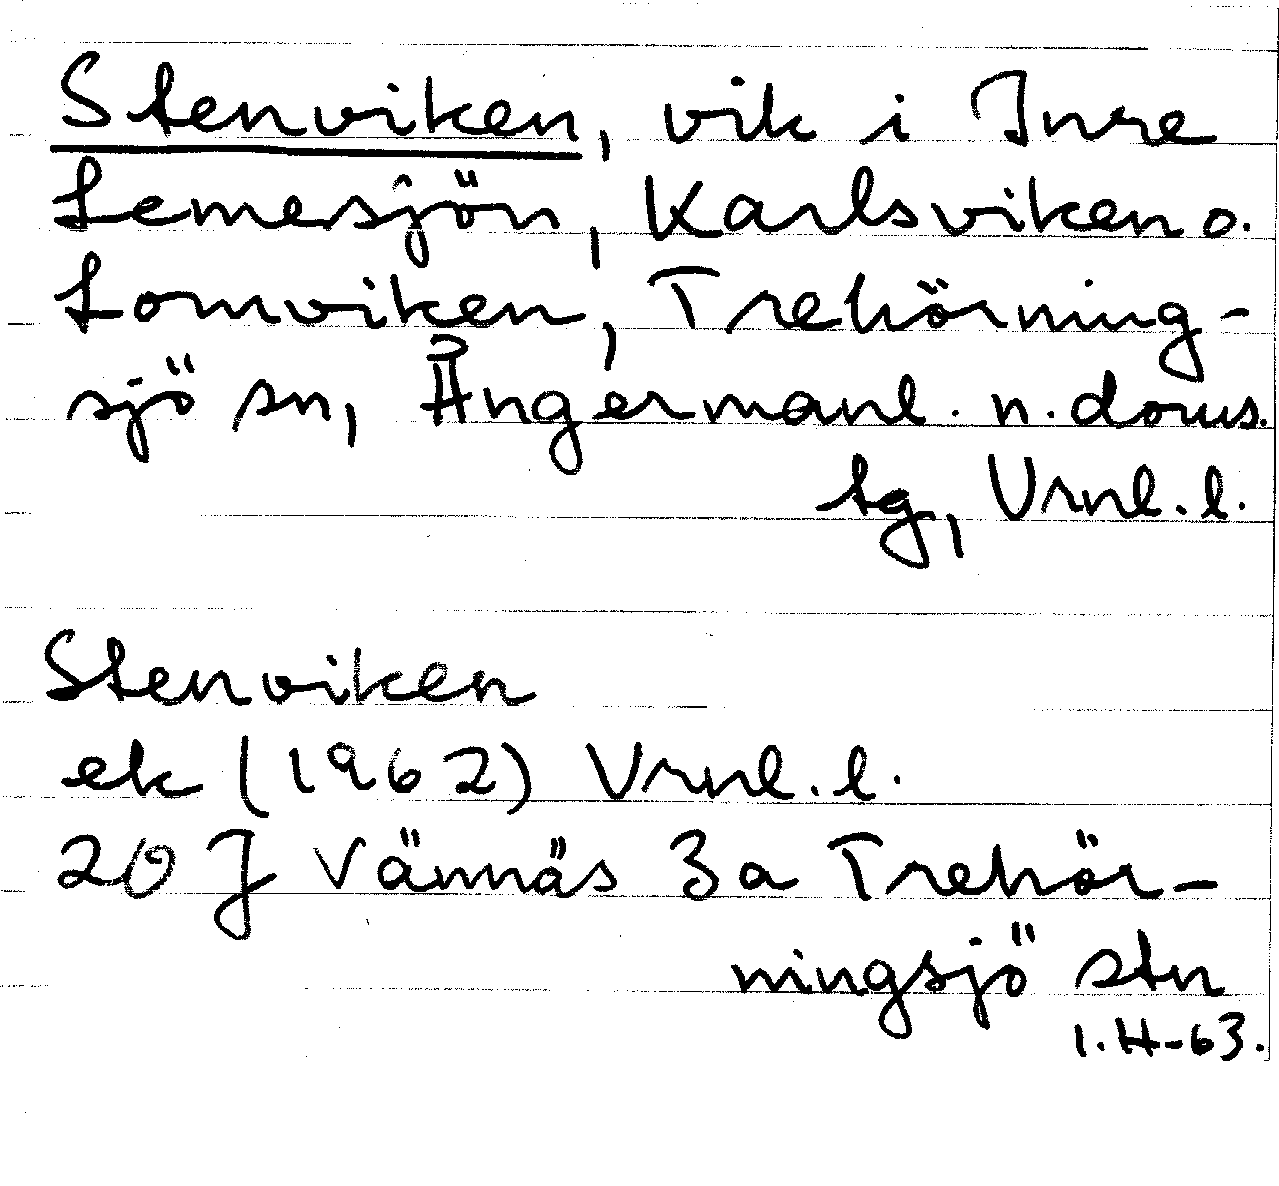 Stenviken, vik i Inre
Lemesjön, Karlsviken o.
Lomviken, Trehörning-
sjö sn, Ångermanl. n. doms.
tg, Vrnl. l.
Stenviken
ek (1962) Vrnl. l.
20 J Vännäs 3a Trehör-
ningsjö stn
I. H-63.